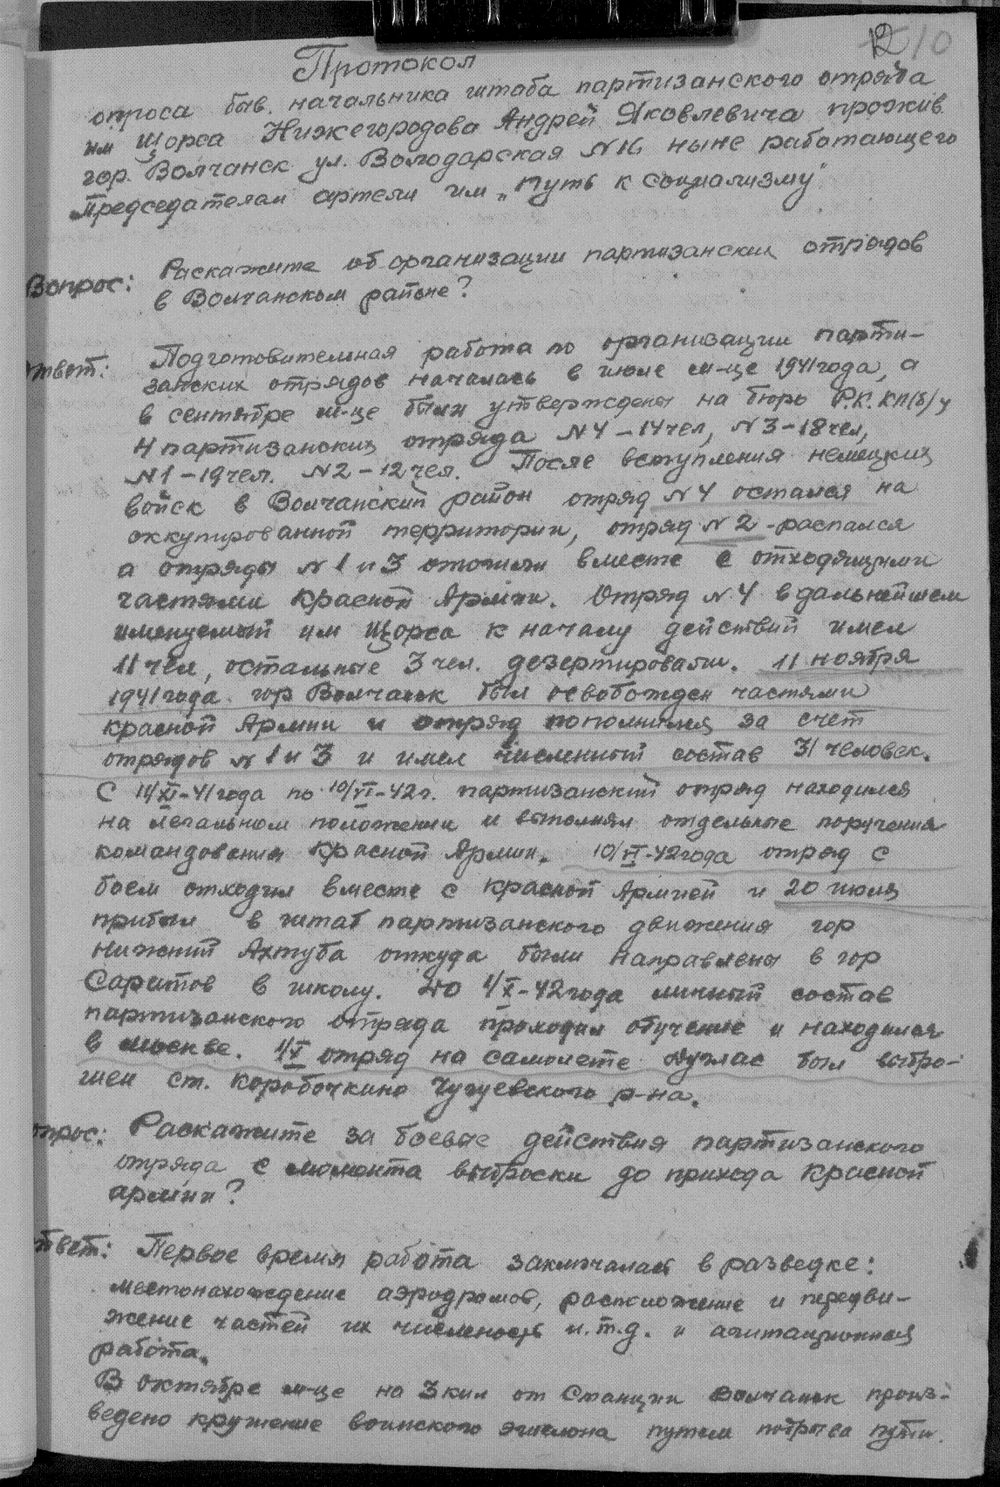 12 10
Протокол
опроса быв. начальника штаба партизанского отряда
им Щорса Нижегородова Андрей Яковлевича прожив
гор. Волчанск ул. Володарская №16 ныне работающего
Председателем артели им „Путь к социализму"
Вопрос: Раскажите об организации партизанских отрядов
в Волчанском районе?
твет: Подготовительная работа по организации парти-
занских отрядов началась в июле м-це 1941 года, а
в сентябре м-це были утверждены на бюро Р.К. КП(б)У
4 партизанских отряда №4 – 14 чел, №3 – 18 чел,
№1 – 19 чел. №2 – 12 чел. После вступления немецких
войск в Волчанский район отряд №4 остался на
оккупированной территории, отряд №2 - распался
а отряды №1 и 3 отошли вместе с отходящими
частями Красной Армии. Отряд №4 в дальнейшем
именуемый им Щорса к началу действий имел
11 чел, остальные 3 чел. дезертировали. 11 ноября
1941 года гор Волчанск был освобожден частями
Красной Армии и отряд пополнился за счет
отрядов №1 и 3 и имел численный состав 31 человек.
С 11/XI-41 года по 10/VI-42 г. партизанский отряд находился
на легальном положении и выполнял отдельные поручения
командования Красной Армии. 10/VI-42 года отряд с
боем отходил вместе с Красной Армией и 20 июля
прибыл в штаб партизанского движения гор
Нижний Ахтуба откуда были направлены в гор
Саратов в школу. До 1/X-42 года личный состав
партизанского отряда проходил обучение и находился
в Москве. 1/X отряд на самолете Дуглас был выбро-
шен ст. Коробочкино Чугуевского р-на.
прос: Раскажите за боевые действия партизанского
отряда с момента выброски до прихода Красной
армии?
твет: Первое время работа заключалась в разведке:
местонахождение аэродромов, расположение и передви-
жение частей их численность и.т.д. и агитационная
работа.
В октябре м-це на 3 км от Станции Волчанск произ-
ведено крушение воинского эшелона путем подрыва пути.